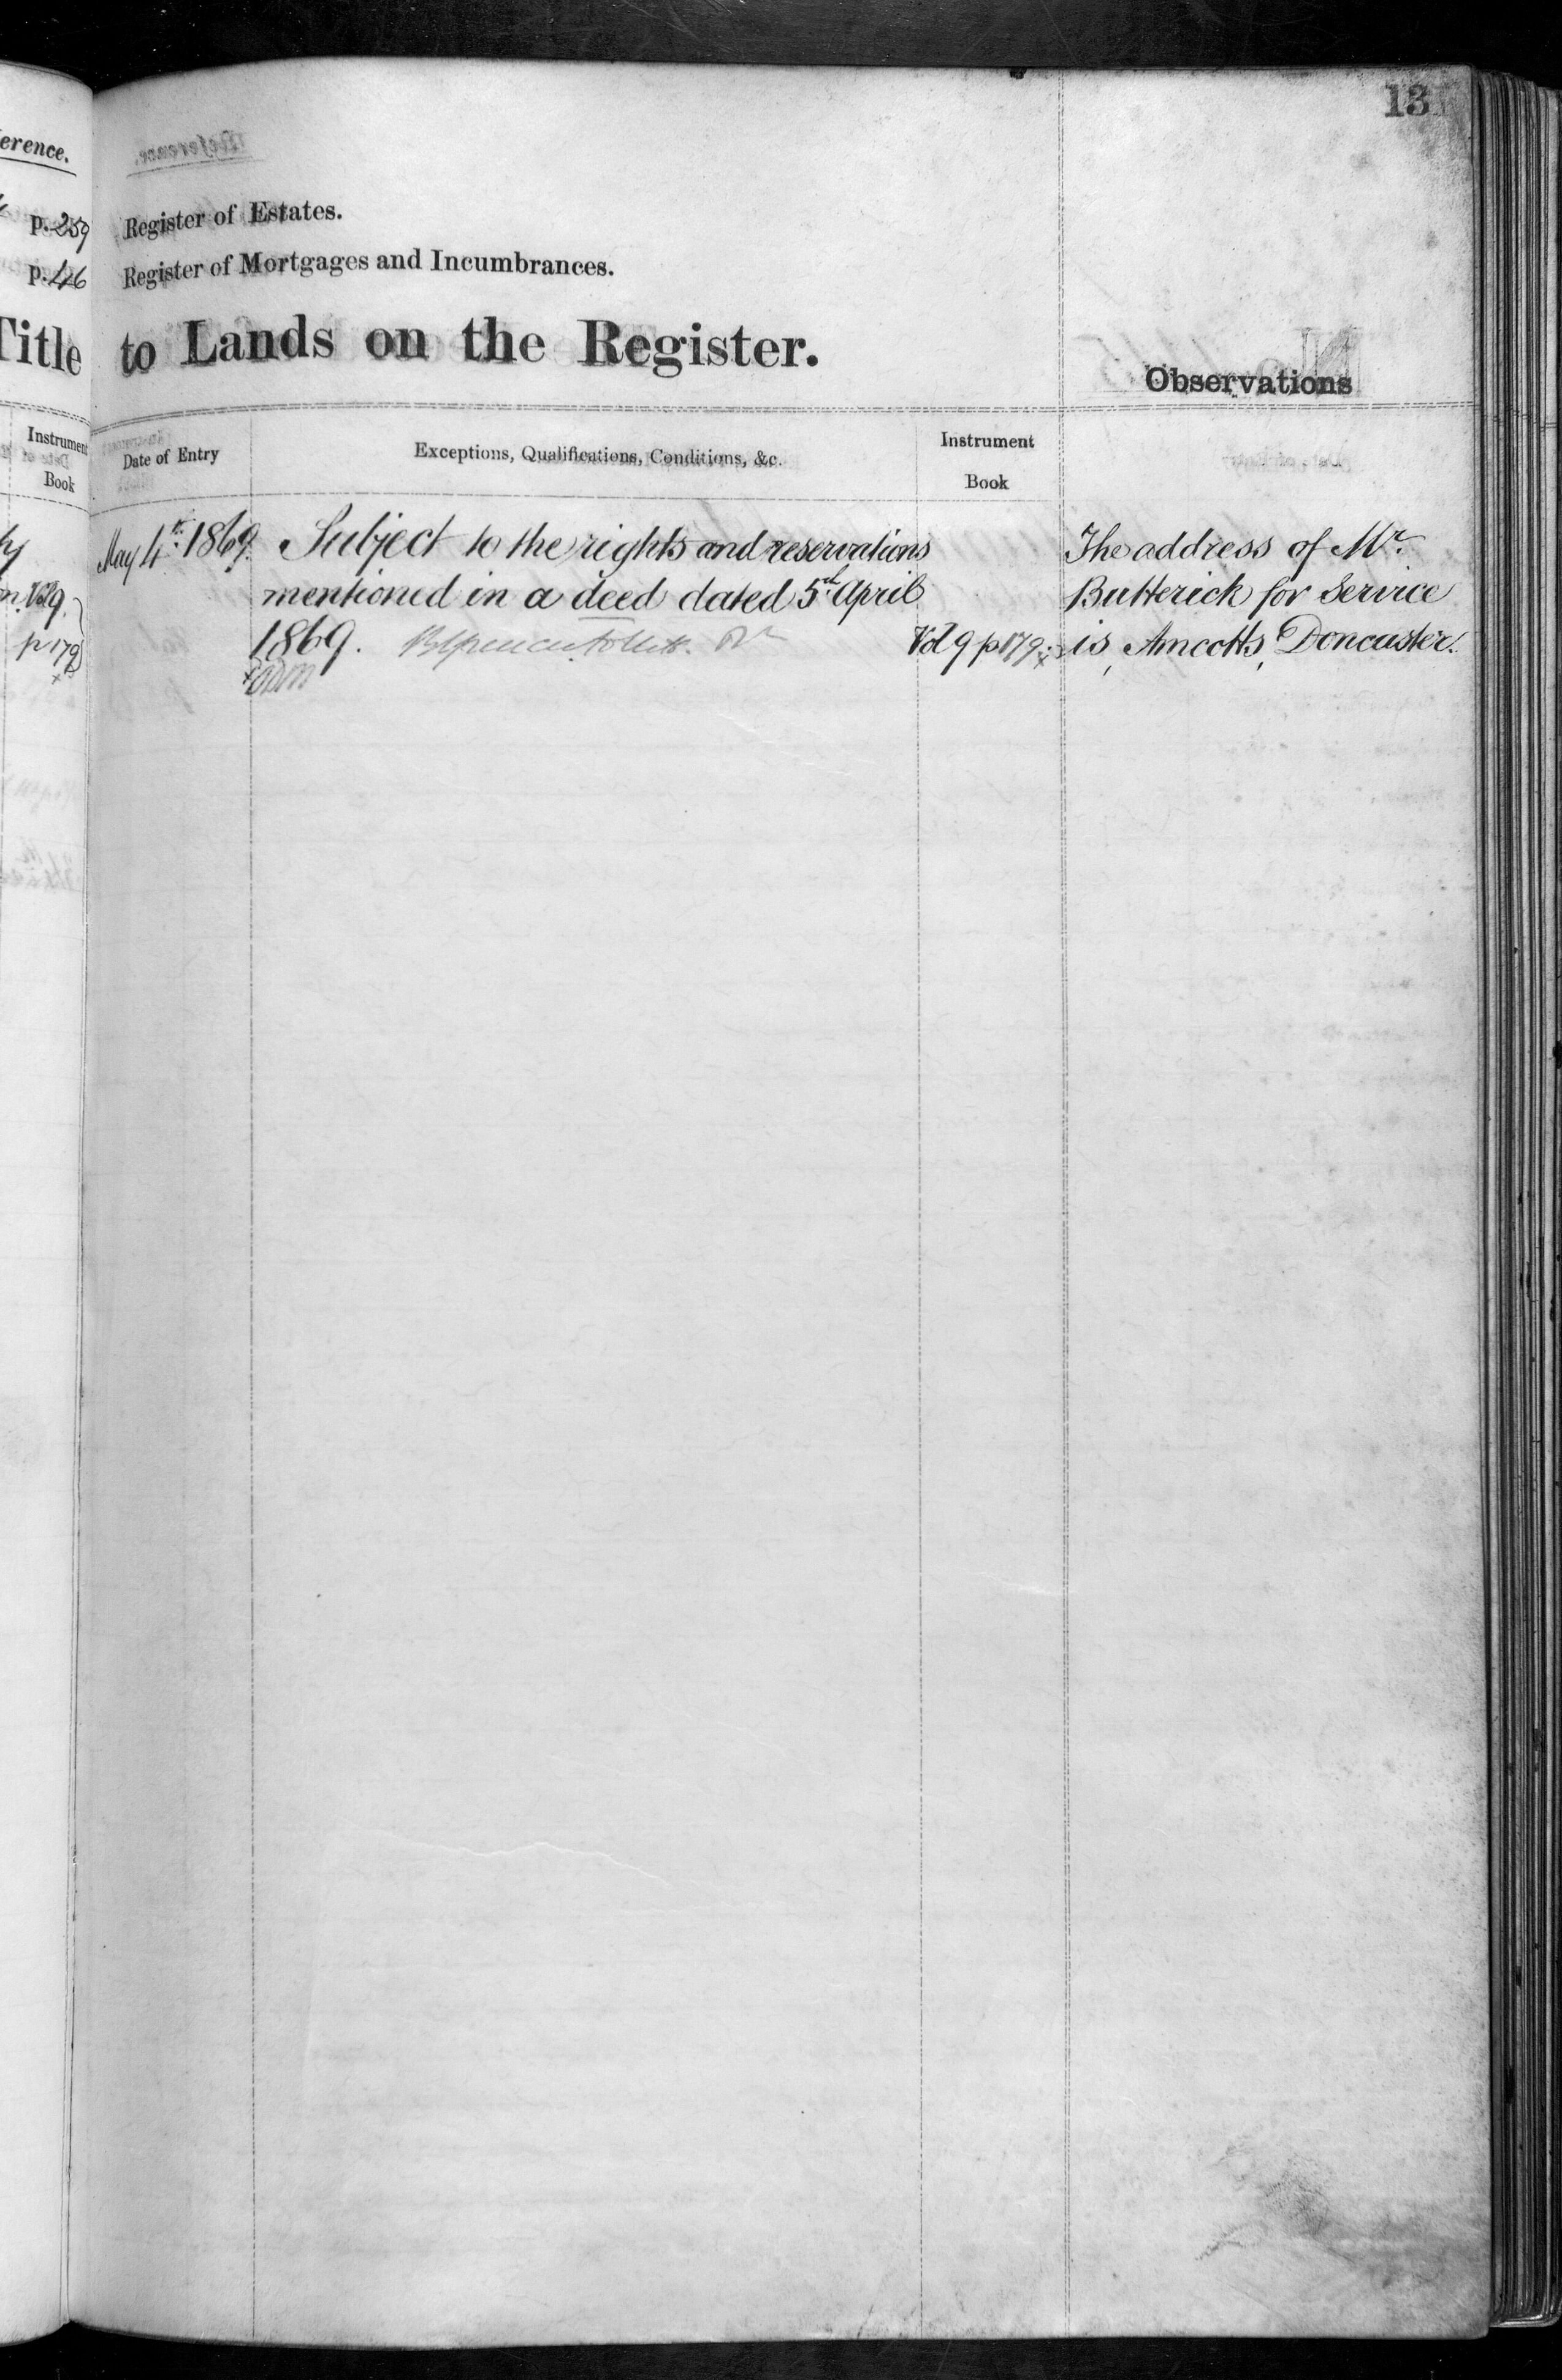 13
erence.
p. 259
p. 46
Title
Instrument
Book
Vol 9
p 179
Register of Estates.
Register of Mortgages and Incumbrances.
to Lands on the Register.
Observations
Date of Entry
Exceptions, Qualifications, Conditions, &c.
Instrument
Book
May 4th 1869. Subject to the rights and reservations
mentioned in a deed dated 5th April
1869.
Vol 9 p 179
The address of Mr.
Butterick for service
is, Amcotts, Doncaster.